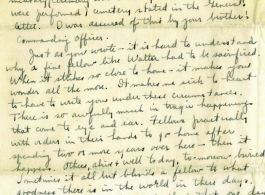 were performed / cemetery stated in the General's
letter. I was assured of this by your brother's
Commanding Officer.
Just as you wrote - it is hard to understand
why a fine fellow like Walter had to be sacrificed.
When it strikes so close to home - it makes you
wonder all the more. It makes me sick to heart
to have to write you under these circumstances.
There is so awfully much in tragic happenings
that come to eye and ear. Fellows practically
with orders in their hands to go home after
spending two or more years over here - then it
happens. Others, alive & well today, tomorrow buried
Sometimes it all but blinds a fellow to what
goodness there is in the world in these days.